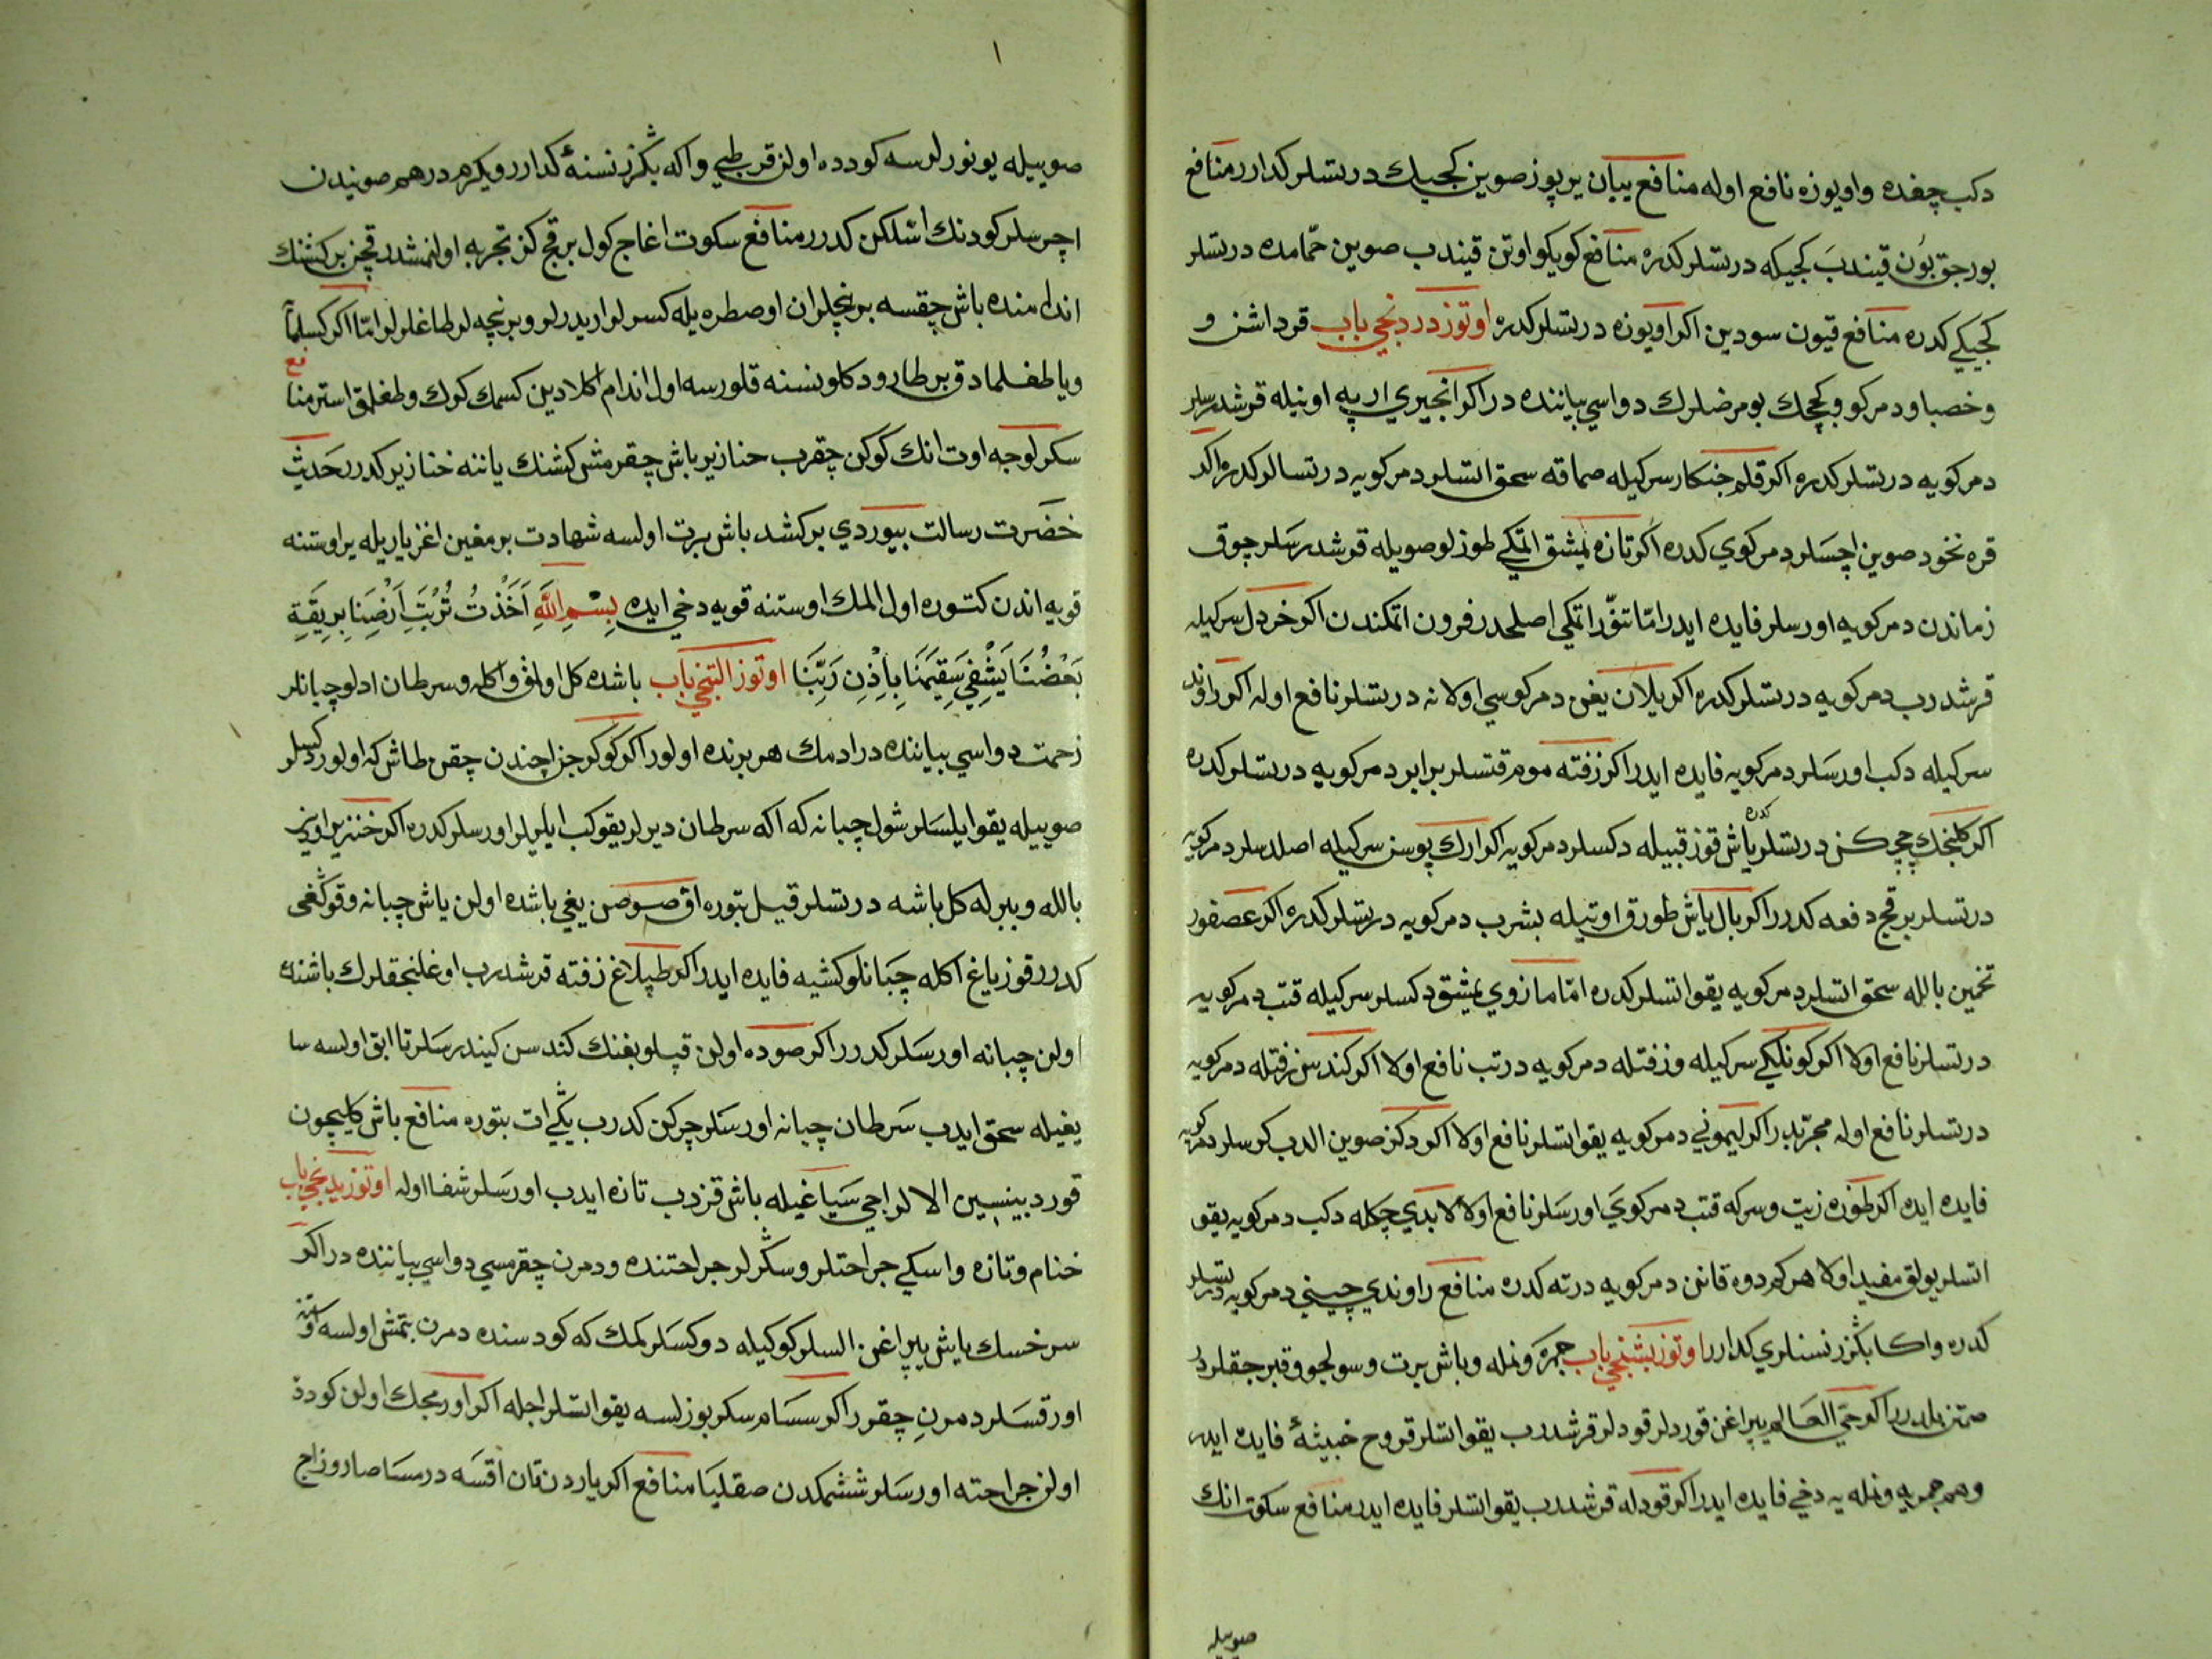 دكب چغده واويوزه نافع اوله منافع بيان يربوز صوين كجيك درتسلر كدارر منافع
بورجق بون قيندب كجيكه درتسلر كدره منافع كويكو اوتن قيندب صوين حمّامده درتسلر
كجيكي كدره منافع قيون سودين اكر اويوزه درتسلر كدره اوتوز دردنجي باب قرداشن و
وخصبا و دمركو وكجك بو مرضلرك دواسي بياننده در اكر انجيري ارپه اونيله قرشدرسلر
دمركويه درتسلر كدره اكر قلم جنكار سركيله صماقه سحق اتسلر دمركويه درتسالر كدره اكر
قره نخود صوين اچسلر دمركوي كدره اكر تازه يمشق اتمكي طوزلو صويله قرشدرسلر چوق
زماندن دمركويه اورسلر فايده ايدر امّا تنوّر اتمكي اصلحدر فرون اتمكندن اكر خردل سركيله
قرشدرب دمركويه درتسلر كدره اكر يلان يغن دمركوسي اولانه درتسلر نافع اوله اكر راوند
سركيله دكب اورسلر دمركويه فايده ايدر اكر زفته موم قتسلر برابر دمركويه درتسلر كدره
اكر كلنجك چچكن درتسلر كدره ياش قوز قبيله دكسلر دمركويه اكر ارك پوسن سركيله اصلدسلر دمركويه
درتسلر بر قچ دفعه كدرر اكر بال ياش طورق اوتيله بشرب دمركويه درتسلر كدره اكر عصفور
تخمين بالله سحق اتسلر دمركويه يقو اتسلر كدره امّا مازوي يمشق دكسلر سركيله قتب دمركويه
درتسلر نافع اولا اكر كونلكي سركيله وزفتله دمركويه درتب نافع اولا اكر كندسن زفتله دمركويه
درتسلر نافع اوله مجرّبدر اكر ليموني دمركويه يقو اتسلر نافع اولا اكر دكز صوين الدب كرسلر دمركويه
فايده ايده اكر طوزه زيت وسركه قتب دمركوي اورسلر نافع اولا لابدي چكله دكب دمركويه يقو
اتسلر يولق مفيد اولا هركم دوه قانن دمركويه درته كدره منافع راوندي چيني دمركويه درتسلر
كدره واكا بكزر نسنلري كدارر اوتوز بشنجي باب جمره ونمله وباش يرت وسولجو وقبرجقلر در
متزبلدرر اكر حيّ العالم يپراغن قوردلر قودلر قرشدرب يقو اتسلر قروح خبيثهٔ فايده ايده
وهم جمريه ونمله يه دخي فايده ايدر اكر قودله قرشدرب يقو اتسلر فايده ايدر منافع سكوت انك
صوييله
صوييله يونورلرسه كودده اولن قرطبي واكه بكزر نسنهٔ كدارر ويكرم درهم صونيدن
اچرسلر كودنك اشلكن كدرر منافع سكوت اغاج كول بر قچ كز تجربه اولنمشدر قچن بر كشنك
اندامنده باش چقسه برنچلران اوصطره يله كسرلر اريدرلر وبرنچه لر طاغلرلر امّا اكر كسلما
ويا طغلمادق بر طارود كلو نسنه قلورسه اول اندام اكلادين كسمك كرك وطغلمق استر منافع
سكرلوجه اوت انك كوكن چقرب خنازير باش چقرمش كشنك ياننه خنازير كدرر حديث
حضرت رسالت بيوردي بر كشد باش يرت اولسه شهادت برمغين اغز ياريله ير اوستنه
قويه اندن كتوره اول الملك اوستنه قويه دخي ايده بِسْمِ اللّهِ اَخَذْتُ تُرْبَتَ اَرْضِنَا بِرِيقَةِ
بَعْضُنَا يَشْفِي سَقِيمَنَا بِاِذْنِ رَبِّنَا اوتوز التنجي باب باشده كل اولمق واكله وسرطان ادلو چبانلر
زحمت دواسي بياننده در ادمك هر يرنده اولور اكر كوكرجز اچندن چقن طاش كه اولور دكسلر
صوييله يقو ايلسلر شول چبانه كه اكه سرطان ديرلر يقو كب ايليلر اورسلر كدره اكر خنزير اودين
بالله وببرله كل باشه درتسلر قيل بتوره اق صوصن يغي باشده اولن ياش چبانه وقوكغى
كدرر قوز ياغ اكله چبانلو كشيه فايده ايدر اكر طپلاغ زفته قرشدرب اوغلنجقلرك باشنده
اولن چبانه اورسلر كدرر اكر صوده اولن قپلوبغنك كندسن كيندرسلر تا ابق اولسه سا
يغيله سحق ايدب سرطان چبانه اورسلر چركن كدرب يكي ات بتوره منافع باش كليچون
قورد بينسين الالراجي سيا غيله باش قزدب تازه ايدب اورسلر شفا اوله اوتوز يدنجي باب
خنام وتازه واسكي جراحتلر وسكرلر جراحتنده ودمرن چقرمسي دواسي بياننده در اكر
سرخسك ياش يپراغن السلر كوكيله دوكسلر كمك كه كودسنده دمرن بتمش اولسه اوستنه
اورقسلر دمرن چقرر اكر سسام سكر بوزلسه يقو اتسلر اجله اكر اورمجك اولن كودده
اولن جراحته اورسلر ششمكدن صقليا منافع اكر ياردن قان اقسه درمسا صاروزاج